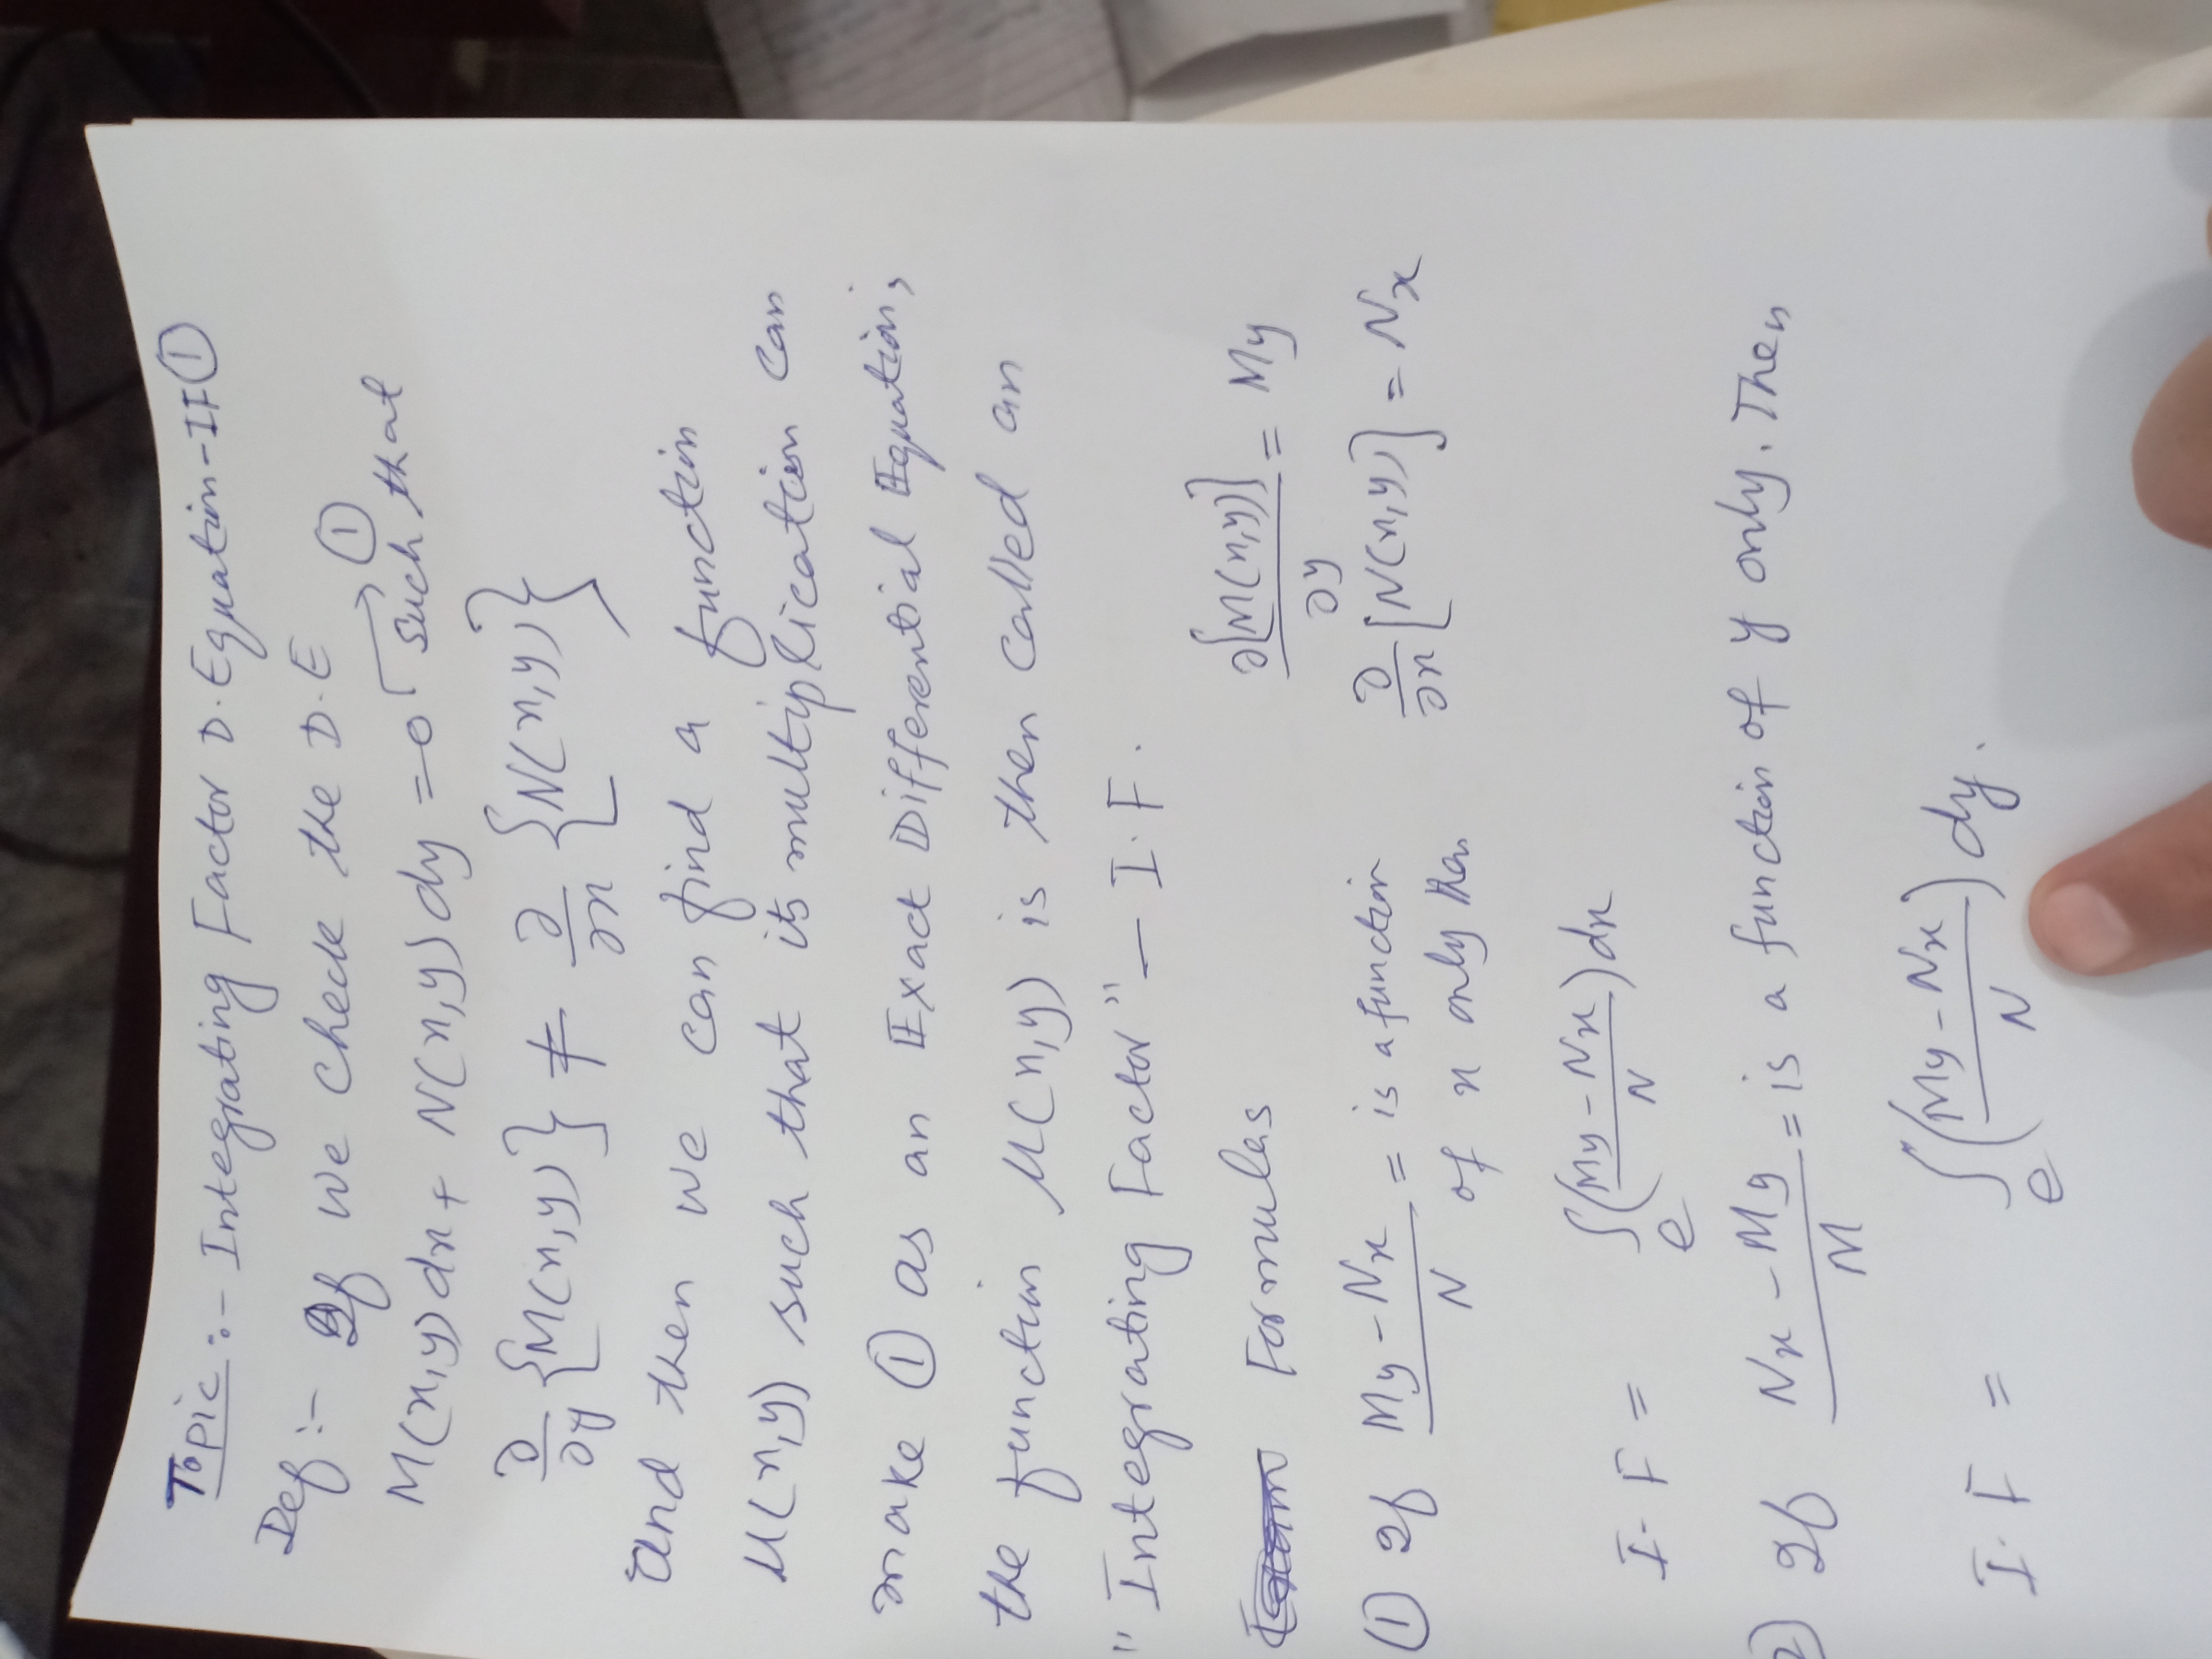 Topic :- Integrating Factor D. Equation-IF①
Def :- If we check the D.E
M(x,y)dx + N(x,y)dy = 0 → ① such that
∂/∂y {M(x,y)} ≠ ∂/∂x {N(x,y)}
and then we can find a function
μ(x,y) such that its multiplication can
make ① as an Exact Differential Equation,
the function μ(x,y) is then called an
"Integrating Factor" — I.F.
Formulas
∂[M(x,y)]/∂y = My
∂/∂x [N(x,y)] = Nx
① If (My - Nx)/N = is a function
of x only then
I.F = e^∫((My - Nx)/N)dx
2) If (Nx - My)/M = is a function of y only. Then
I.F = e^∫((My - Nx)/N)dy.